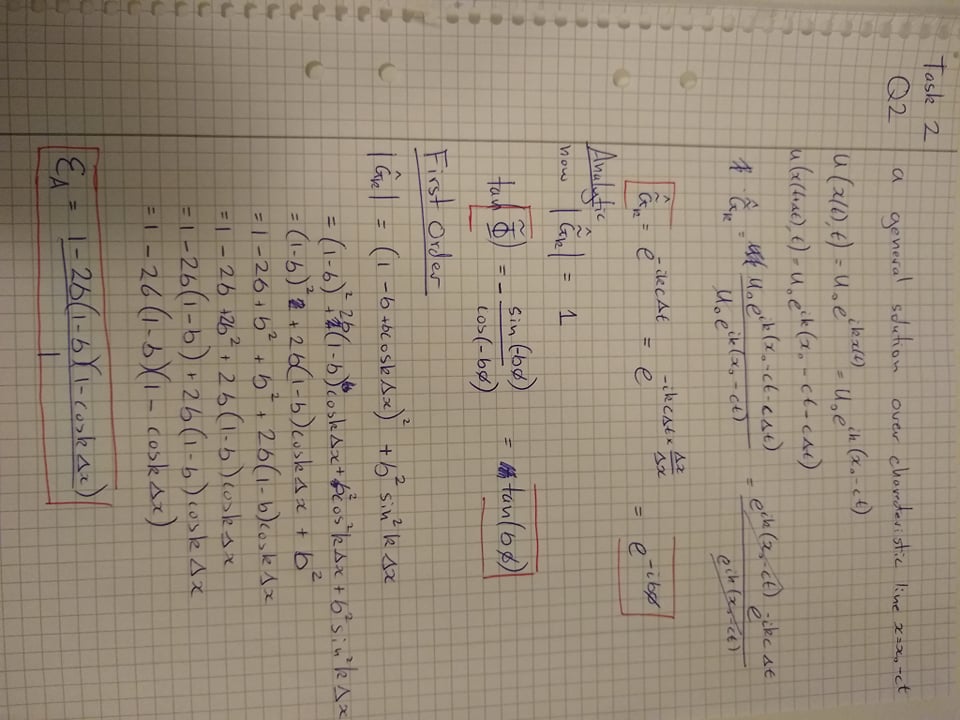 Task 2
Q2 a general solution over charcteristic line x=x₀-ct
U(x(t),t) = U₀e^{ikx(t)} = U₀e^{ik(x₀-ct)}
U(x(t+Δt),t) = U₀e^{ik(x₀-ct-cΔt)}
Ĝ_k = \frac{U₀e^{ik(x₀-ct-cΔt)}}{U₀e^{ik(x₀-ct)}} = \frac{e^{ik(x₀-ct)} e^{-ikcΔt}}{e^{ik(x₀-ct)}}
Ĝ_k = e^{-ikcΔt} = e^{-ikcΔt×\frac{Δx}{Δx}} = e^{-ibø}
Analytic
now |\tilde{G}_k| = 1
tan(\tilde{Φ}) = -\frac{sin(-bø)}{cos(-bø)} = tan(bø)
First Order
|Ĝ_k| = (1-b+bcoskΔx)² + b²sin²kΔx
= (1-b)² + 2b(1-b)coskΔx + b²cos²kΔx + b²sin²kΔx
= (1-b)² + 2b(1-b)coskΔx + b²
= 1-2b+b² + b² + 2b(1-b)coskΔx
= 1-2b+2b² + 2b(1-b)coskΔx
= 1-2b(1-b) + 2b(1-b)coskΔx
= 1-2b(1-b)(1-coskΔx)
ε_A = \frac{1-2b(1-b)(1-coskΔx)}{1}